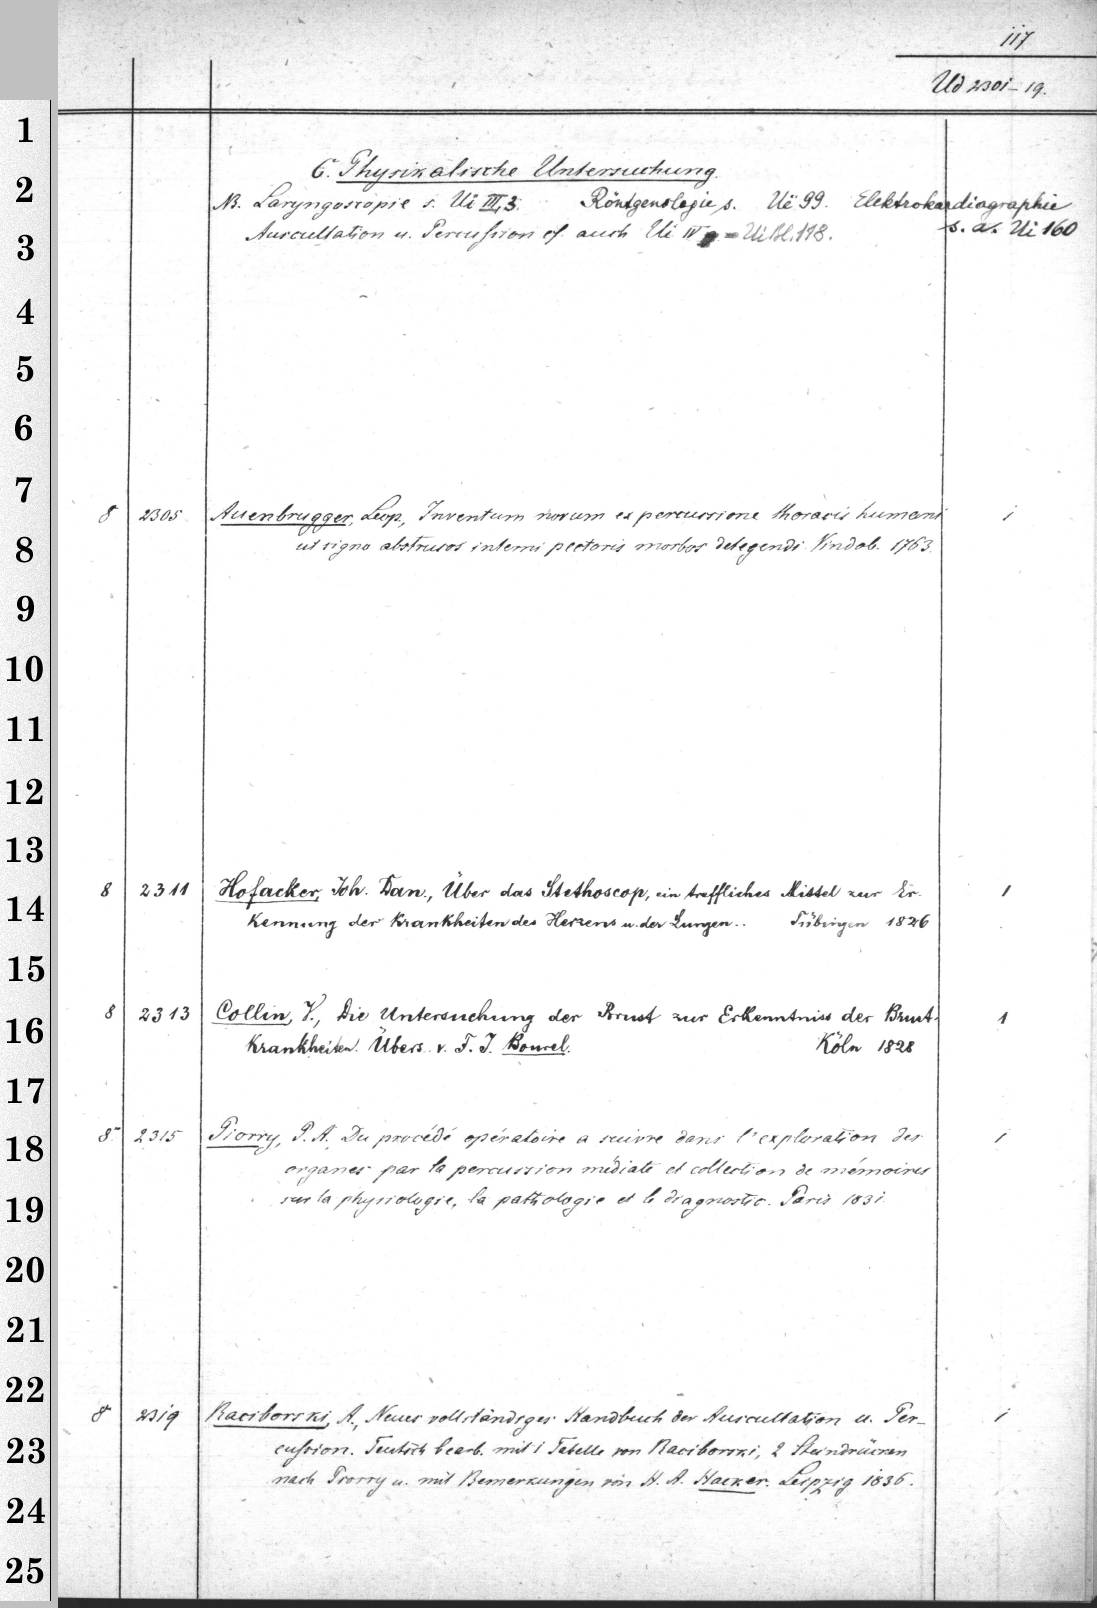 117
Ud 2301-19.
1
6. Physikalische Untersuchung.
2
NB. Laryngoscopie s. Ui III,3. Röntgenologie s. Uï 99. Elektrokardiographie
3
Auscultation u. Percussion cf. auch Ui IV = Ui Bl. 118. s. a. Ui 160
4
5
6
7
8 2305 Auenbrugger, Leop., Inventum novum ex percussione thoracis humani 1
8
ut signo abstrusos interni pectoris morbos detegendi. Vindob. 1763.
9
10
11
12
13
8 2311 Hofacker, Joh. Dan., Über das Stethoscop, ein treffliches Mittel zur Er- 1
14
kennung der Krankheiten des Herzens u. der Lungen.. Tübingen 1826
15
8 2313 Collin, V., Die Untersuchung der Brust zur Erkenntniss der Brust- 1
16
Krankheiten. Übers. v. F. J. Bourel. Köln 1828
17
8 2315 Piorry, P. A. Du procédé opératoire a suivre dans l'exploration des 1
18
organes par la percussion médiate et collection de mémoires
19
sur la physiologie, la pathologie et le diagnostic. Paris 1831.
20
21
22
8 2319 Raciborski, A., Neues vollständiges Handbuch der Auscultation u. Per- 1
23
cussion. Teutsch bearb. mit 1 Tabelle von Raciborski, 2 Steindrücken
nach Piorry u. mit Bemerkungen von H. A. Hacker. Leipzig 1836.
24
25